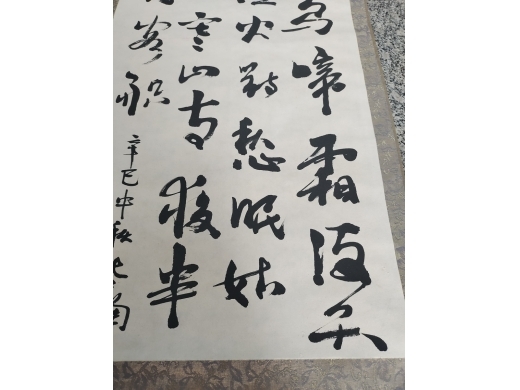 烏啼霜满天
火對愁眠姑
寒山寺夜半
客船
辛巳中秋